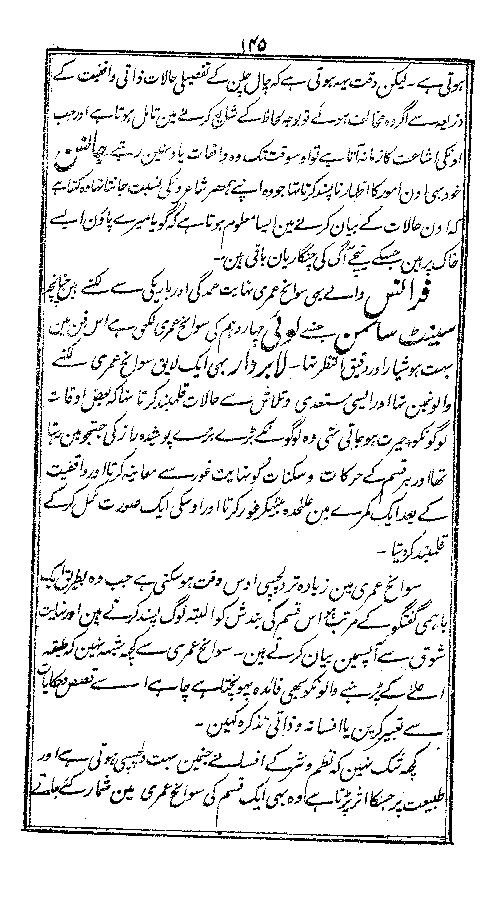 ۱۴۵
ہوتی ہے۔ لیکن دقت یہہ ہوتی ہے کہ چال چلن کے تفصیلی حالات ذاتی واقفیت کے
ذریعہ سے اگر وہ مخالف ہوئے تو بوجہ لحاظ کے شایع کرنے مین تامل ہوتا ہے اور جب
اونکی اشاعت کا زمانہ آتا ہے تو اوسوقت تک وہ واقعات یاد نہین رہتے۔ جانسن
خود بھی اون امور کا اظہار ناپسند کرتا تھا جو وہ اپنے ہمعصر شاعرونکی نسبت جانتا تھا وہ کہتا ہے
کہ اون حالات کے بیان کرنے مین ایسا معلوم ہوتا ہے کہ گویا میرے پاؤن ایسے
خاک پر ہین جسکے نیچے آگ کی چنگاریان باقی ہین۔
فرانس والے بھی سوانح عمری نہایت عمدگی اور باریکی سے لکھتے ہین چنانچہ
سینٹ سائمن جسنے لوئی چہاردہم کی سوانح عمری لکھی ہے اس فن مین
بہت ہوشیار اور دقیق النظر تھا۔ لابردار بھی ایک لایق سوانح عمری لکھنے
والونمین تھا اور ایسی مستعدی و تلاش سے حالات قلمبند کرتا تھا کہ بعض اوقات
لوگونکو حیرت ہوجاتی تھی وہ لوگونکے بڑے بڑے پوشیدہ راز کی جستجو مین رہتا
تھا اور ہر قسم کے حرکات و سکنات کو نہایت غور سے معاینہ کرتا اور واقفیت
کے بعد ایک کمرے مین علحدہ بیٹھکر غور کرتا اور اوسکی ایک صورت مکمل کرکے
قلمبند کردیتا۔
سوانح عمری مین زیادہ تر دلچسپی اوس وقت ہوسکتی ہے جب وہ بطریق ایک
باہمی گفتگو کے مرتب ہو اس قسم کی بندش کو البتہ لوگ پسند کرتے ہین اور نہایت
شوق سے آپسمین بیان کرتے ہین۔ سوانح عمری سے کچھ شبہہ نہین کہ طبقہ
اعلے کے پڑہنے والونکو بھی فائدہ پہونچتا ہے چاہے اسے قصص و حکایات
سے تعبیر کرین یا افسانہ و ذاتی تذکرہ کہین۔
کچھ شک نہین کہ نظم و نثر کے افسانے جنمین بہت دلچسپی ہوتی ہے اور
طبیعت پر جسکا اثر پڑتا ہے وہ بھی ایک قسم کی سوانح عمری مین شمار کئے جاتے